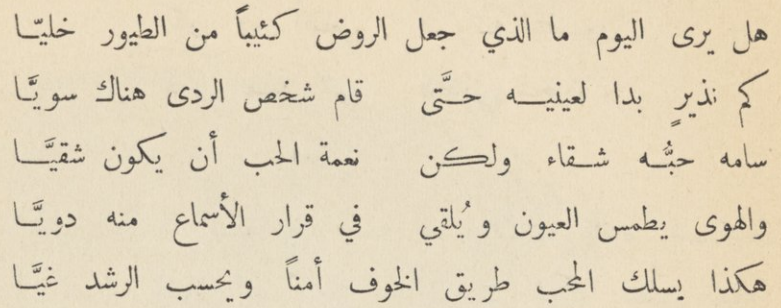 هل يرى اليوم ما الذي جعل الروض كئيباً من الطيور خليّا
كم نذيرٍ بدا لعينيه حتَّى قام شخص الردى هناك سويَّا
سامه حبُّه شقاء ولكن نعمة الحب أن يكون شقيَّا
والهوى يطمس العيون ويُلقي في قرار الأسماع منه دويَّا
هكذا يسلك المحب طريق الخوف أمناً ويحسب الرشد غيَّا